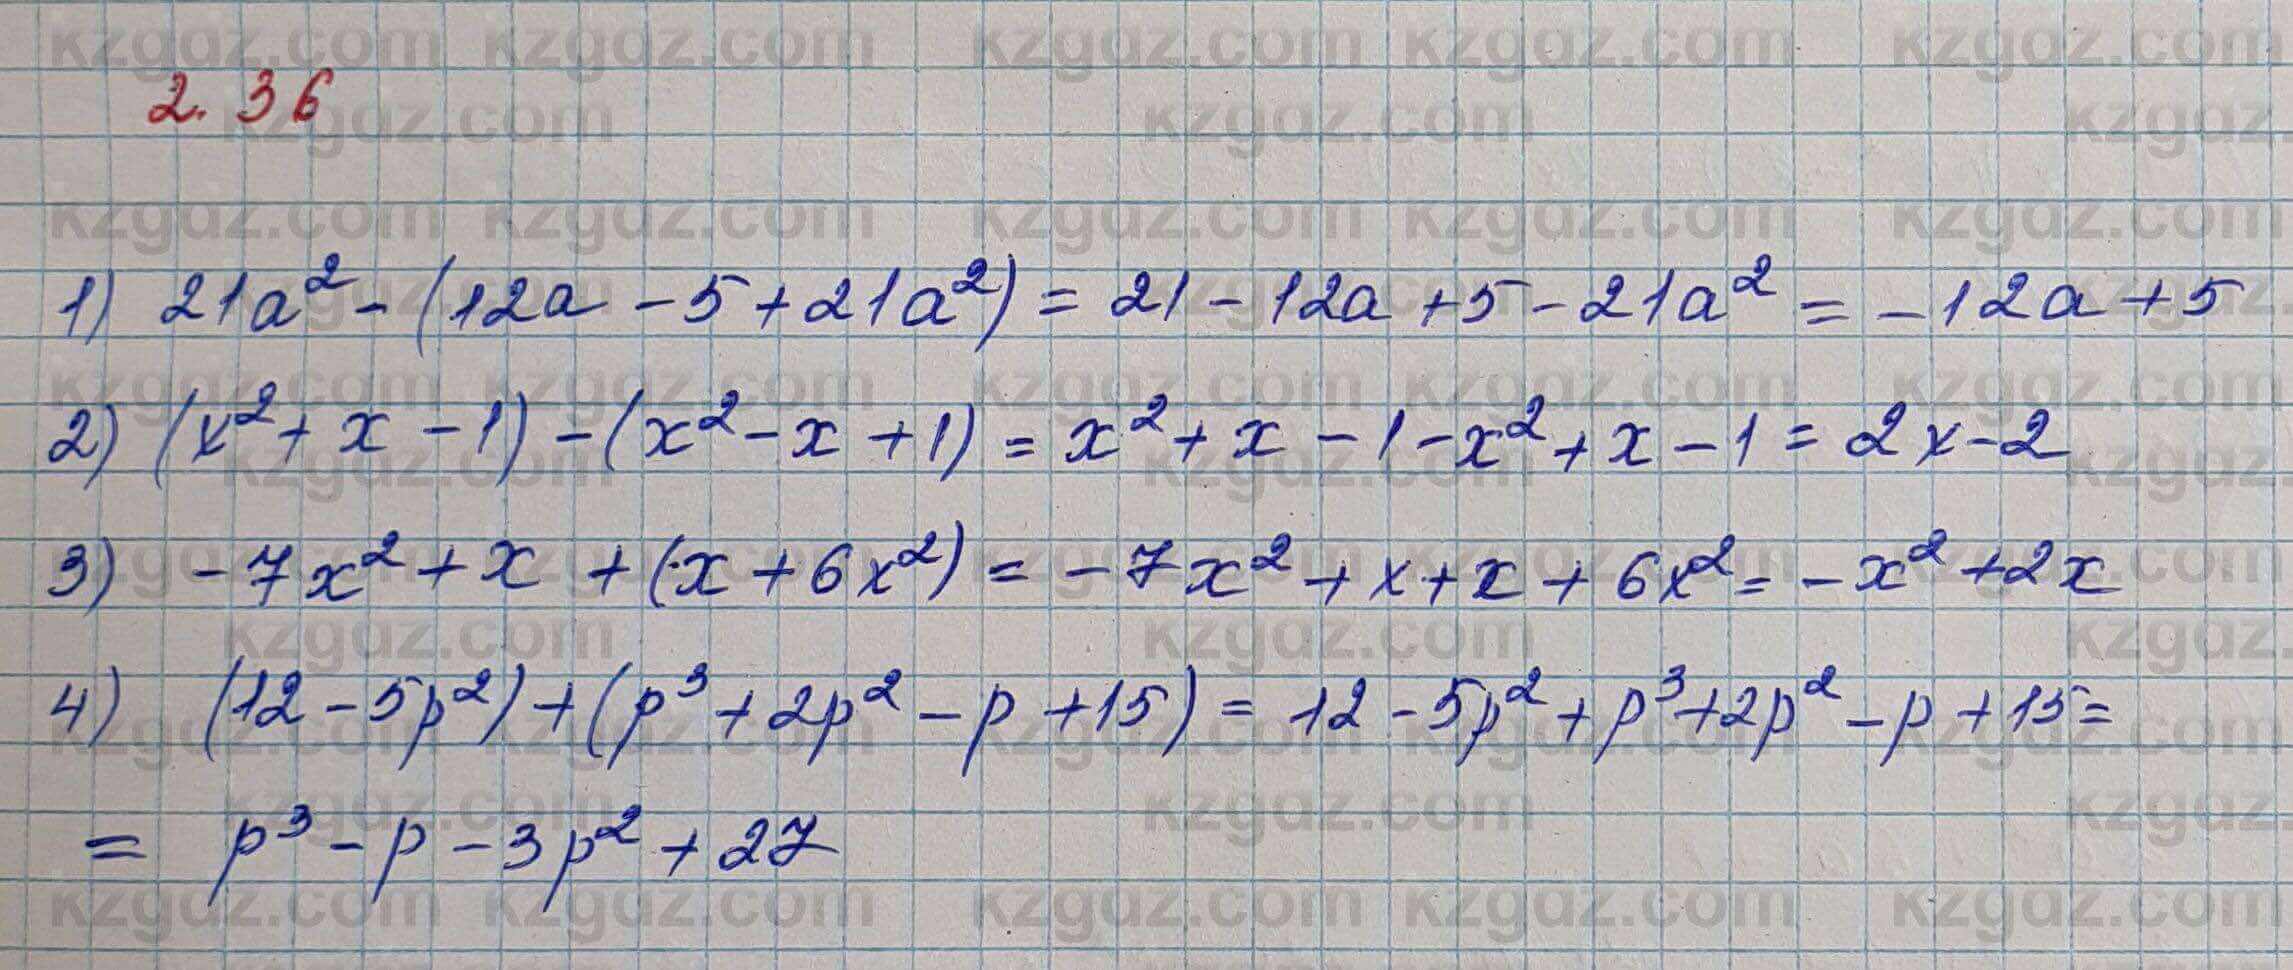 2.36
1) 21a² - (12a - 5 + 21a²) = 21 - 12a + 5 - 21a² = -12a + 5
2) (x² + x - 1) - (x² - x + 1) = x² + x - 1 - x² + x - 1 = 2x - 2
3) -7x² + x + (x + 6x²) = -7x² + x + x + 6x² = -x² + 2x
4) (12 - 5p²) + (p³ + 2p² - p + 15) = 12 - 5p² + p³ + 2p² - p + 15 =
= p³ - p - 3p² + 27
kzgdz.com